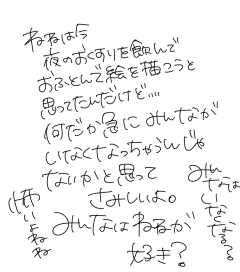 ねねは今
夜のおくすりを飲んで
おふとんで絵を描こうと
思ってたんだけど....
何だか急に みんなが
いなくなっちゃうんじゃ
ないかと思って
さみしいよ。
みんなはねねが
好き?
怖いよねね
みんなはいなくなる?